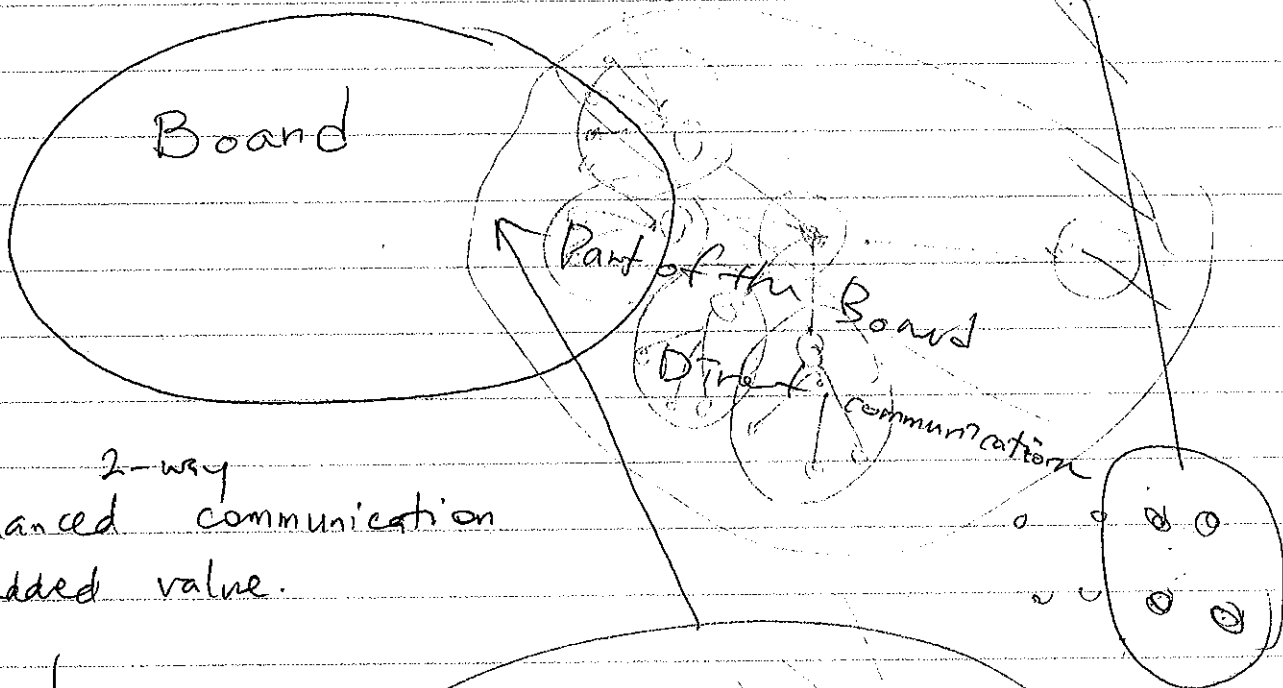 Board
Part of the Board
Direct communication
2-way
anced communication
dded value.